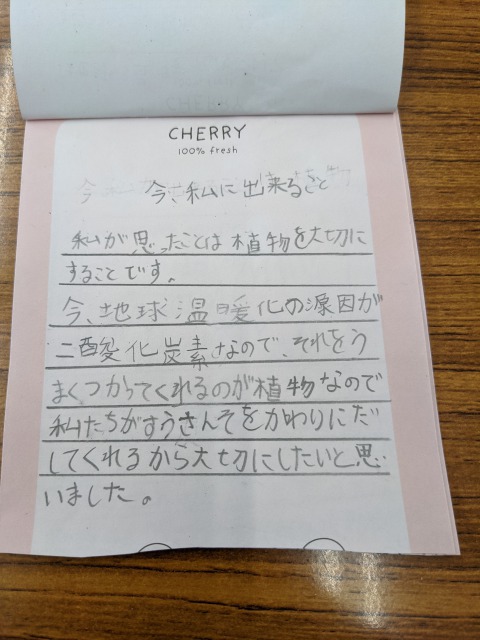 CHERRY
100% fresh
今、私に出来ること
私が思ったことは植物を大切に
することです。
今、地球温暖化の源因が
二酸化炭素なので、それをう
まくつかってくれるのが植物なので
私たちがすうさんそをかわりにだ
してくれるから大切にしたいと思
いました。